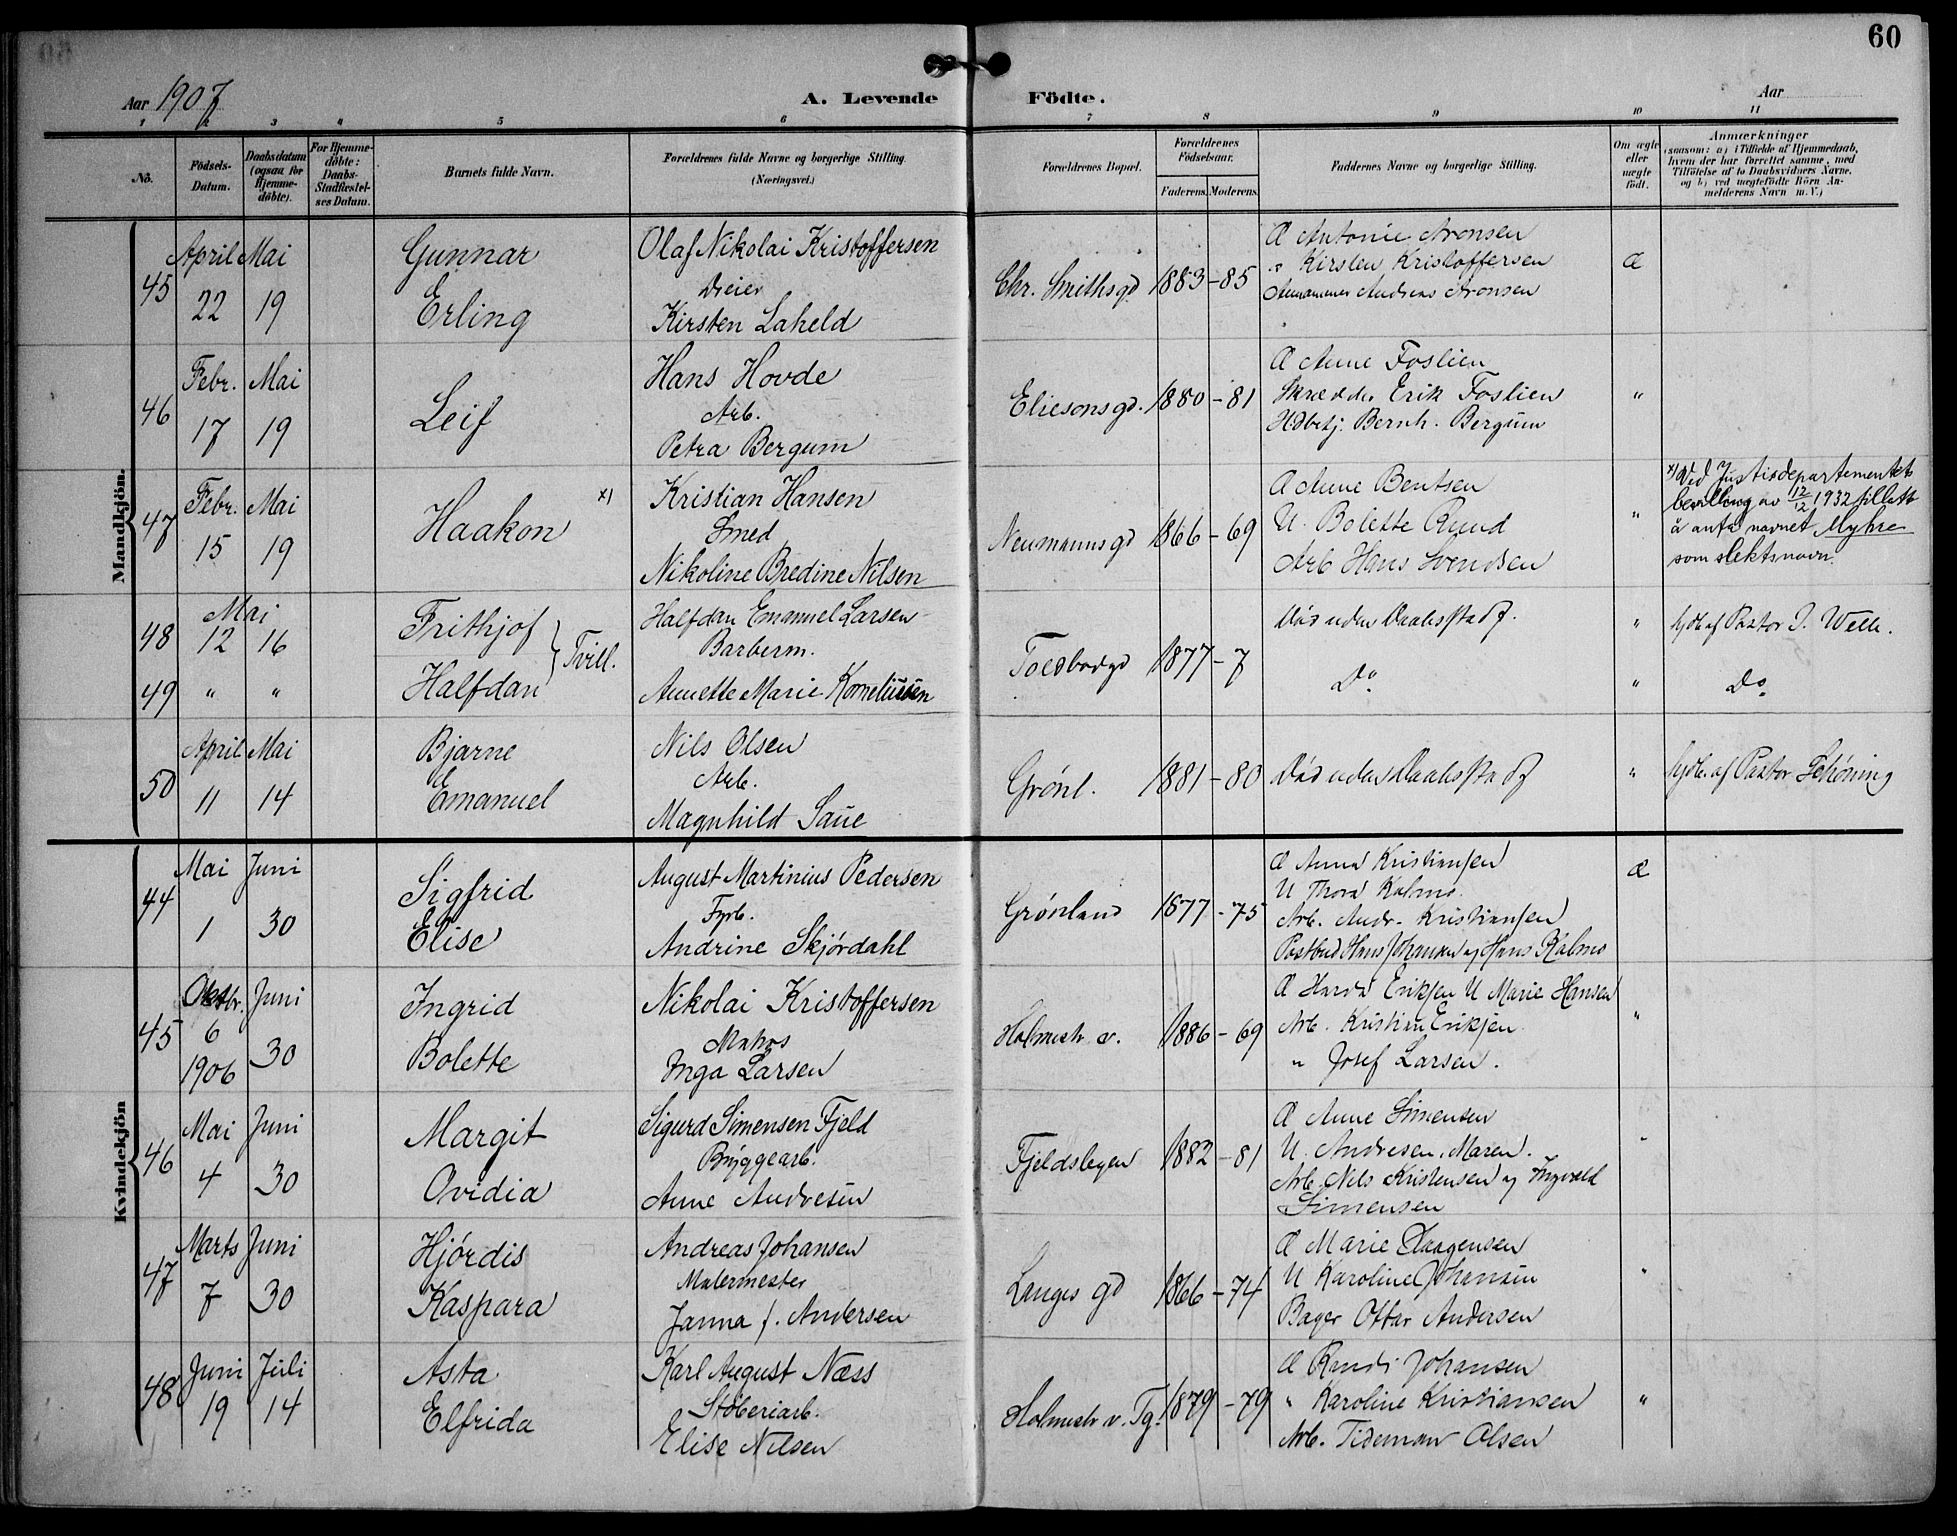 60
Aar 1907
A. Levende Födte.
Aar
1 2 3 4 5 6 7 8 9 10 11
No.
Födsels-Datum.
Daabsdatum (ogsaa for Hjemme-döbte).
For Hjemme-döbte: Daabs-Stadfæstel-ses Datum.
Barnets fulde Navn.
Forældrenes fulde Navne og borgerlige Stilling.
(Næringsvei.)
Forældrenes Bopæl.
Forældrenes Födselsaar.
Faderens. Moderens.
Faddernes Navne og borgerlige Stilling.
Om ægte eller uægte födt.
Anmærkninger
(saasom: a) i Tilfælde af Hjemmedaab, hvem der har forrettet samme, med Tilföielse af to Daabsvidners Navne, og b) ved uægtefödte Börn Anmelderens Navn m. V.)
Mandkjön.
45 April 22 Mai 19
Gunnar
Erling
Olaf Nikolai Kristoffersen
Dreier
Kirsten Laheld
Chr. Smithsgd. 1883-85
Æ Antonie Aronsen
" Kirsten Kristoffersen
Andreas Aronsen
Æ
46 Febr. 17 Mai 19
Leif
Hans Hovde
Arb.
Petra Bergum
Eliesonsgd. 1880-81
Æ Anne Foslien
Skrædder Erik Foslien
Bernh. Bergum
"
47 Febr. 15 Mai 19
Haakon x)
Kristian Hansen
Smed
Nikoline Bredine Nilsen
Neumannsgd 1866-69
Æ Anne Bentsen
U. Bolette Rund
Arb Hans Svendsen
"
x) Ved Justisdepartementets
bevilling av 12/12 1932 tillatt
å anta navnet Myhre
som slektsnavn.
48 Mai 12 16
Frithjof
49 " "
Halfdan
} Tvill.
Halfdan Emanuel Larsen
Barberm.
Annette Marie Korneliussen
Toldbodgd 1877-7
Død uden Daabsstadf.
"
hjdb. af Pastor J. Welle.
Do
"
Do
50 April 11 Mai 14
Bjarne
Emanuel
Nils Olsen
Arb.
Magnhild Saue
Grønl. 1881-80
Død uden Daabsstadf
"
hjdb. af Pastor Schøning
Kvindekjön
44 Mai 1 Juni 30
Sigfrid
Elise
August Martinius Pedersen
Fyrb.
Andrine Skjørdahl
Grønland 1877-75
Æ Anna Kristiansen
U Thora Kalmo.
Arb. Andr. Kristiansen
Postbud Hans Johansen og Hans Kalmo
Æ
45 Oktbr. 6 1906 Juni 30
Ingrid
Bolette
Nikolai Kristoffersen
Matros
Inga Larsen
Holmestr v. 1886-69
Æ Harda Eriksen U Marie Hansen
Arb. Kristian Eriksen
" Josef Larsen.
"
46 Mai 4 Juni 30
Margit
Ovidia
Sigurd Simensen Fjeld
Bryggearb.
Anne Andresen
Fjeldsbyen 1882-81
Æ Anne Simensen
U. Andresen, Maren.
Arb. Nils Kristensen og Ingvald
Simensen
"
47 Marts 7 Juni 30
Hjørdis
Kaspara
Andreas Johansen
Malermester
Janna f. Andersen
Langes gd 1866-74
Æ Marie Haagensen
U Karoline Johansen
Bager Ottar Andersen
"
48 Juni 19 Juli 14
Asta
Elfrida
Karl August Næss
Støberiarb.
Elise Nilsen
Holmestr v. Tg. 1879-79
Æ Randi Johansen
" Karoline Kristiansen
Arb. Tideman Olsen
"